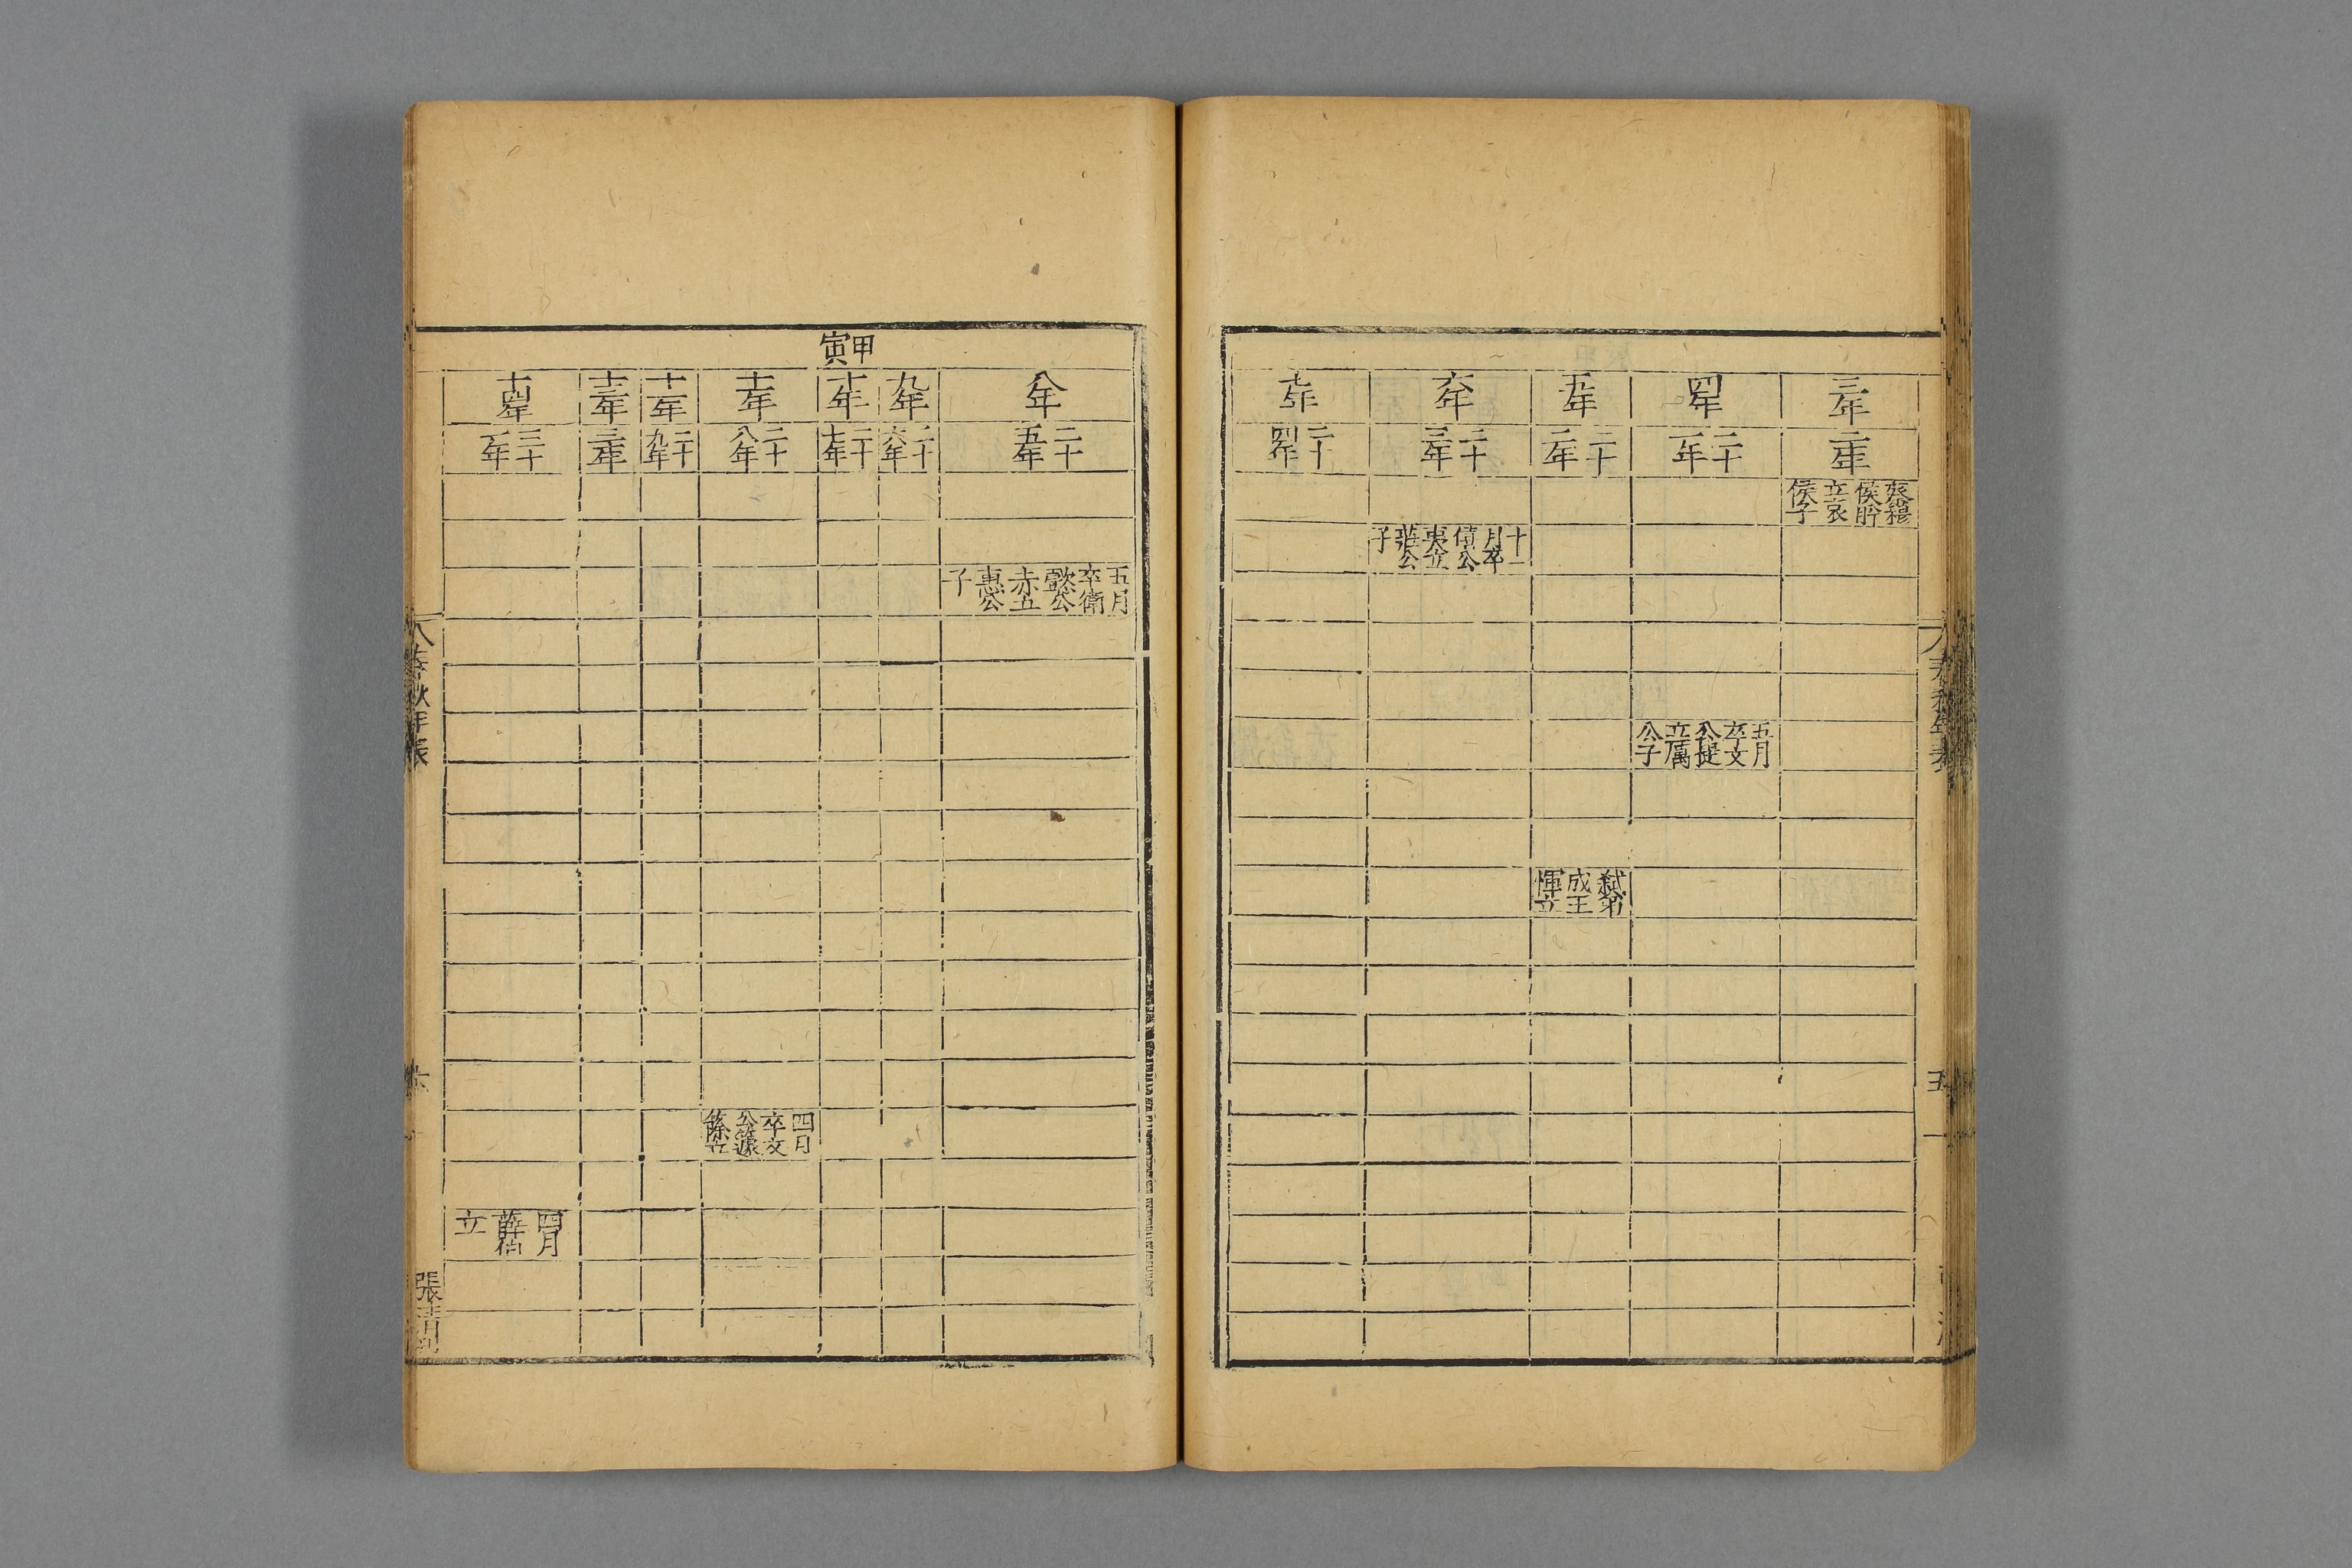 三年
二十年
爽穆
侯肹
立哀
侯子
四年
二十
一年
五月
卒文
公捷
立厲
公子
五年
二十
二年
弑弟
成王
惲立
六年
二十
三年
十一
月卒
僖公
夷立
莊公
子
七年
二十
四年
春秋年表
五
甲寅
八年
二十
五年
五月
卒衛
懿公
赤立
惠公
子
九年
二十
六年
十年
二十
七年
十一年
二十
八年
四月
卒文
公蘧
蒢立
十二年
二十
九年
十三年
三十年
十四年
三十
一年
四月
薛伯
立
春秋年表
六